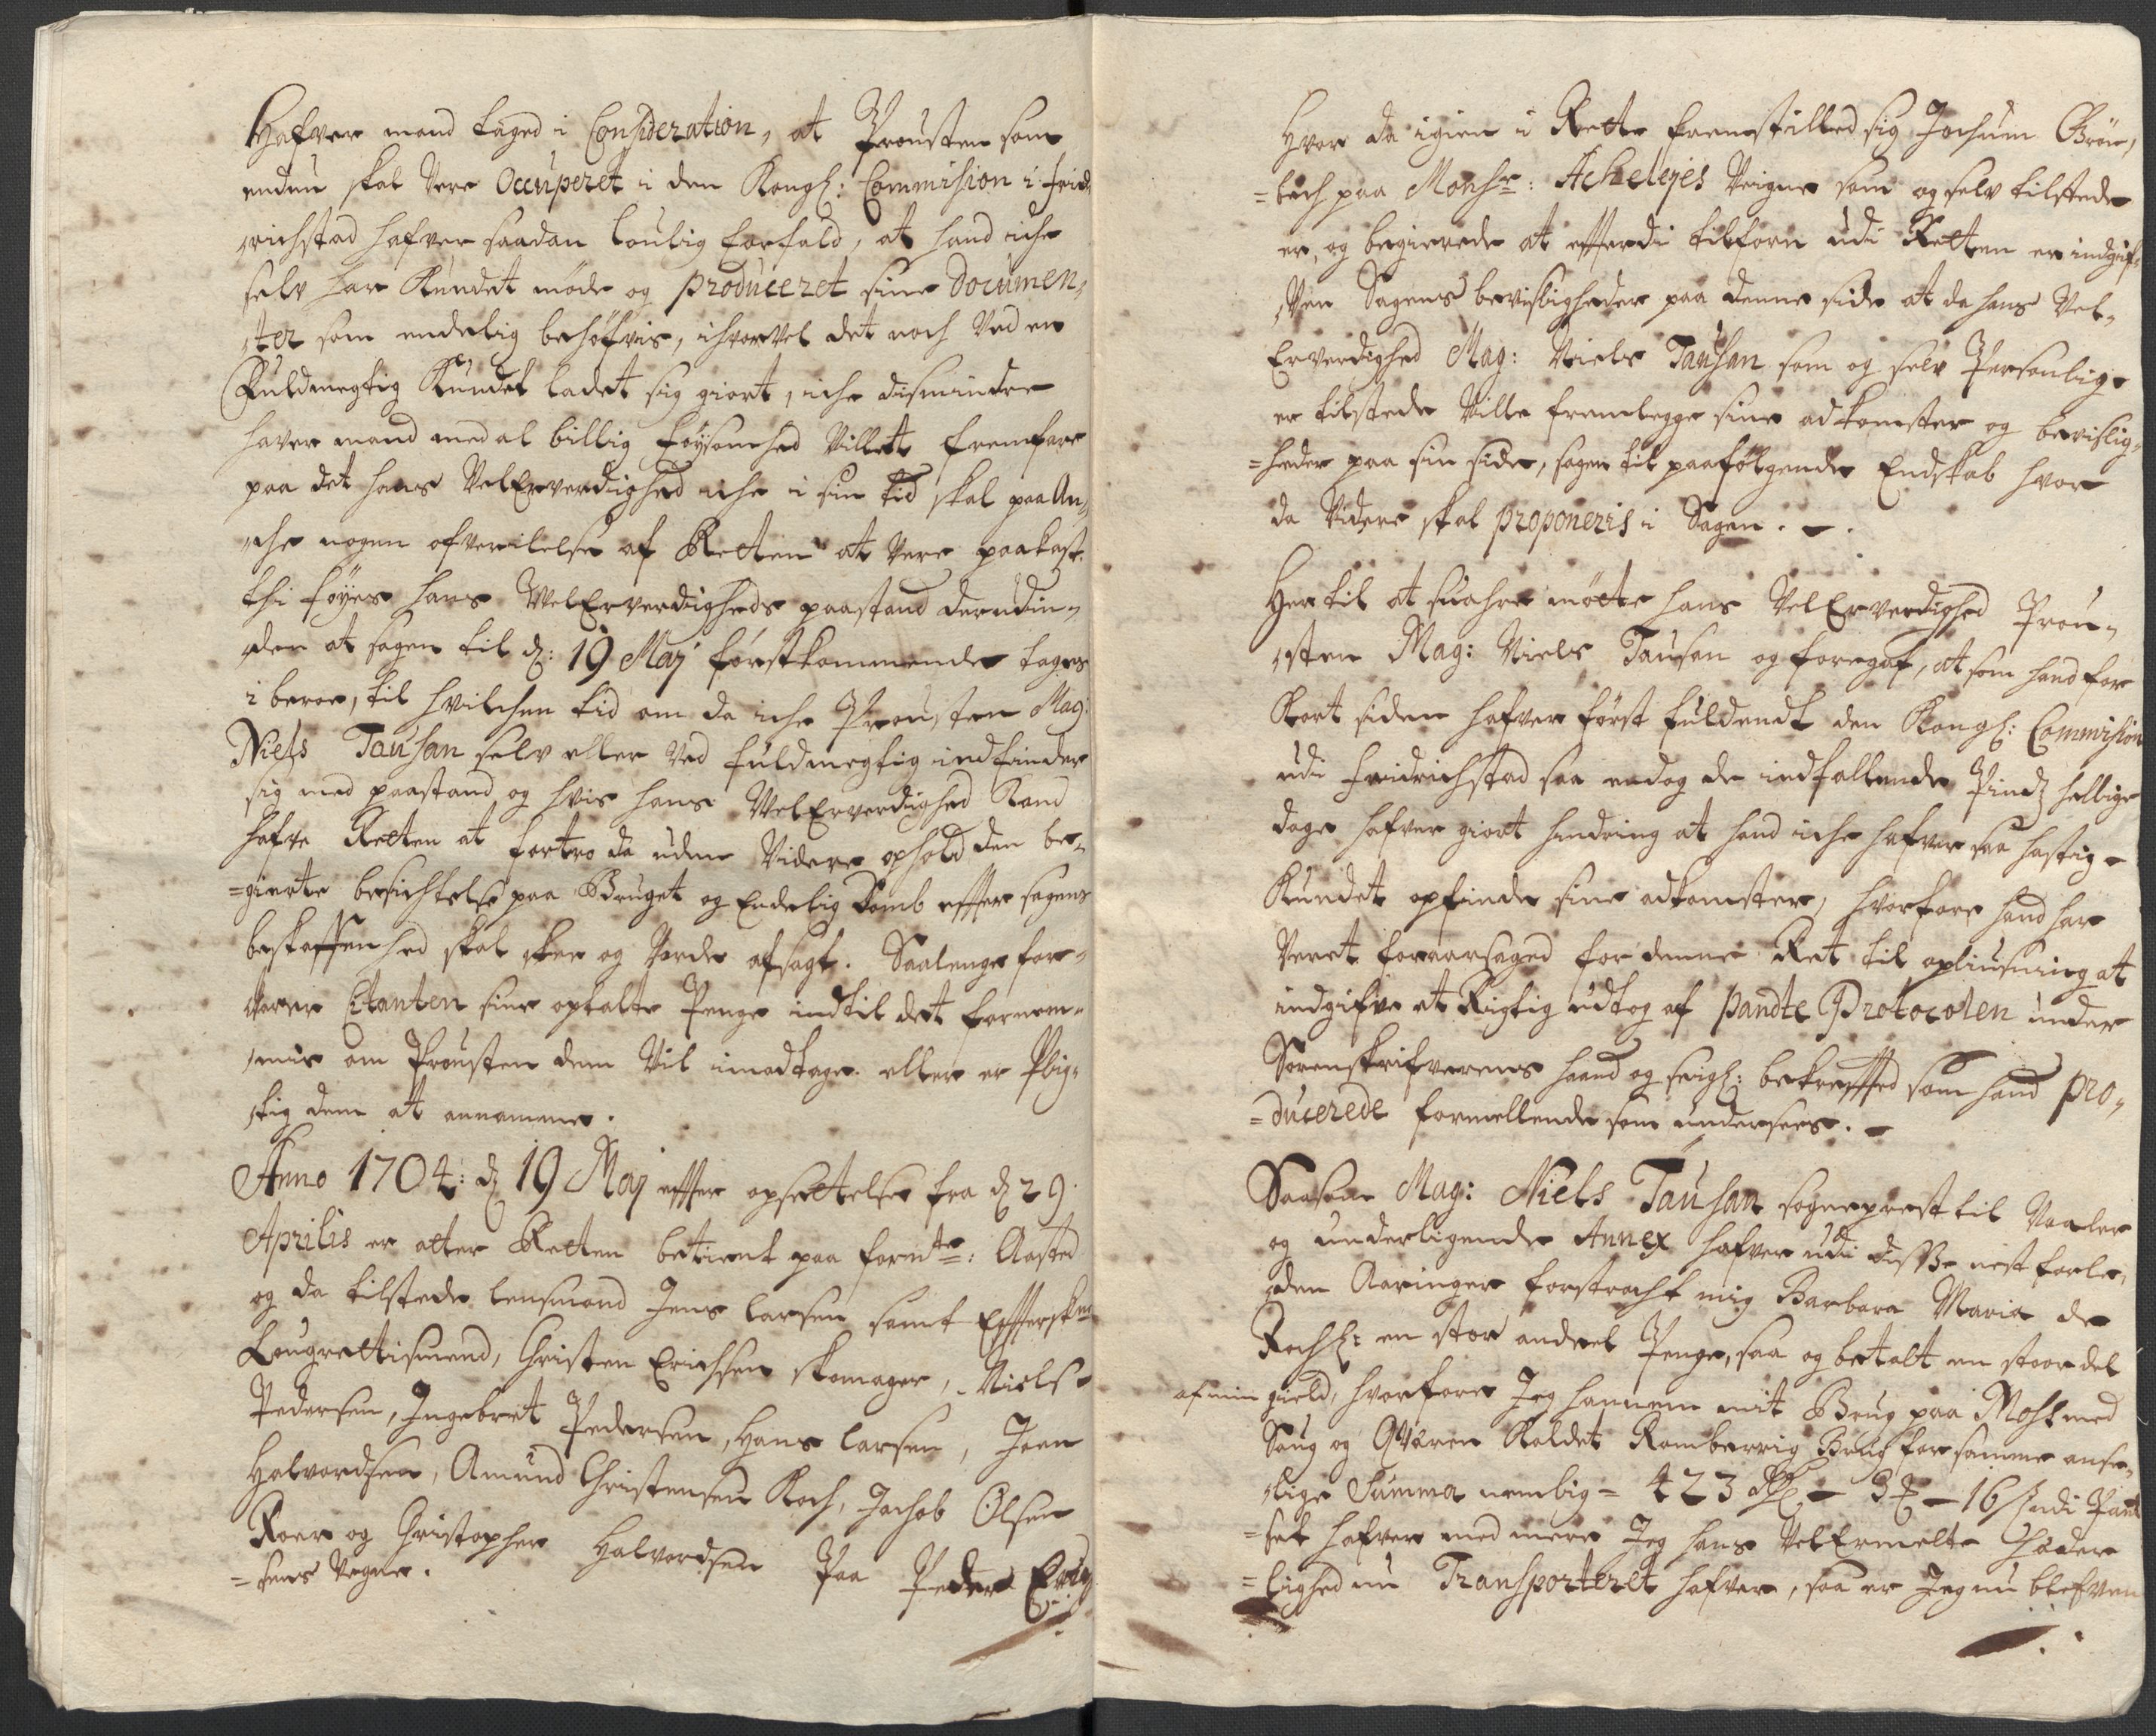 Hafver mand taged i Consideration, at Prousten som
endnu skal Vere Occuperet i den Kongl: Commision i frid,
richstad hafver saadan loulig forfald, at hand iche
selv har Kundet møde og produceret sine Documen,
ter som endelig behøfvis, ihvorvel det noch Ved en
Fuldmegtig Kundet ladet sig giort, iche disminder
haver mand med al billig føysomhed Villet fremfare
paa det hans VelErverdighed iche i sin tid skal paa An,
che nogen ofverilelse af Retten at Vere paakast.
thi føyes hans WelErverdigheds paastand derudin,
den at sagen til d: 19 Maj førstkommende tages
i beroe, til hvilchen tid om da iche Prousten Mag:
Niels Tausan selv eller Ved fuldmegtig indfinder
sig med paastand og hvis hans WelErverdighed Kand
hafve Retten at fortro da uden Videre ophold den be,
=gierte besichtelse paa Bruget og Endelig Domb effter sagens
beskaffenhed skal skee og Vorde afsagt. Saalenge for,
varer Citanten sine optalte Penge indtil det fornem,
mis om Prousten dem Vil imodtage eller er Plig,
tig dem at annamme.
Anno 1704: d 19 Maj effter opsettelse fra d 29
Aprilis er atter Retten betient paa formte: Aasted
og da tilstede lensmand Jens larsen samt Effterskne
Lougrettismend, Christen Erichsen skomager, Niels
Pedersen, Ingebret Pedersen, Hans larsen, Joen
Halvordsen, Amund Christensen Koch, Jachob Olsen
Roer og Christopher Halvordsen Paa Peder Erich
=sens Vegne.
Hvor da igien i Rette fremstilled sig Jochum Brøn,
=bech paa Monsr: Acheleyes Veigne som og selv tilstede
er, og begierede at effterdi tilforn udi Retten er indgif,
ven Sagens bevisligheder paa denne side at da hans Vel,
Erverdighed Mag: Niels Tausan som og selv Personlig
er tilstede Ville fremlegge sine adkomster og bevislig,
=heder paa sin side, sagen til paafølgende Endskab hvor
da Videre skal proponeris i Sagen.
Her til at suahre møtte hans VelErverdighed Prou,
sten Mag: Niels Tausan og foregaf, at som hand for
Kort siden hafver først fuldendt den Kongl: Commision
udi fridrichstad saa endog de indfallende Pindz hellige
dage hafver giort hindring at hand iche hafver saa hastig
Kundet opfinde sine adkomster, hvorfore hand har
Veret foraarsaged for denne Ret til opliusning at
indgifve et Rigtig udtog af pandte Protocolen under
Sorenskrifverens haand og seigl: bekreffted som hand pro,
=ducerede formellende som undersees.
Saasom Mag: Niels Tausan sogneprest til Vaaler
og underligende Annex hafver udi disse nest forle,
den Aaringer forstracht mig Barbara Maria de
Rochl: en stor andeel Penge, saa og betalt en stoor del
af min gield, hvorfore Jeg hannem mit Brug paa Moss med
Saug og Qværn Kaldet Romberrig Brug for samme anse,
lige Summa nemblig = 423 Rdl - 3 - 16 s udi Pant
=sat hafver med mere Jeg hans VelErmelte Hæder
=lighed nu Transporteret hafver, saa er Jeg nu blefven